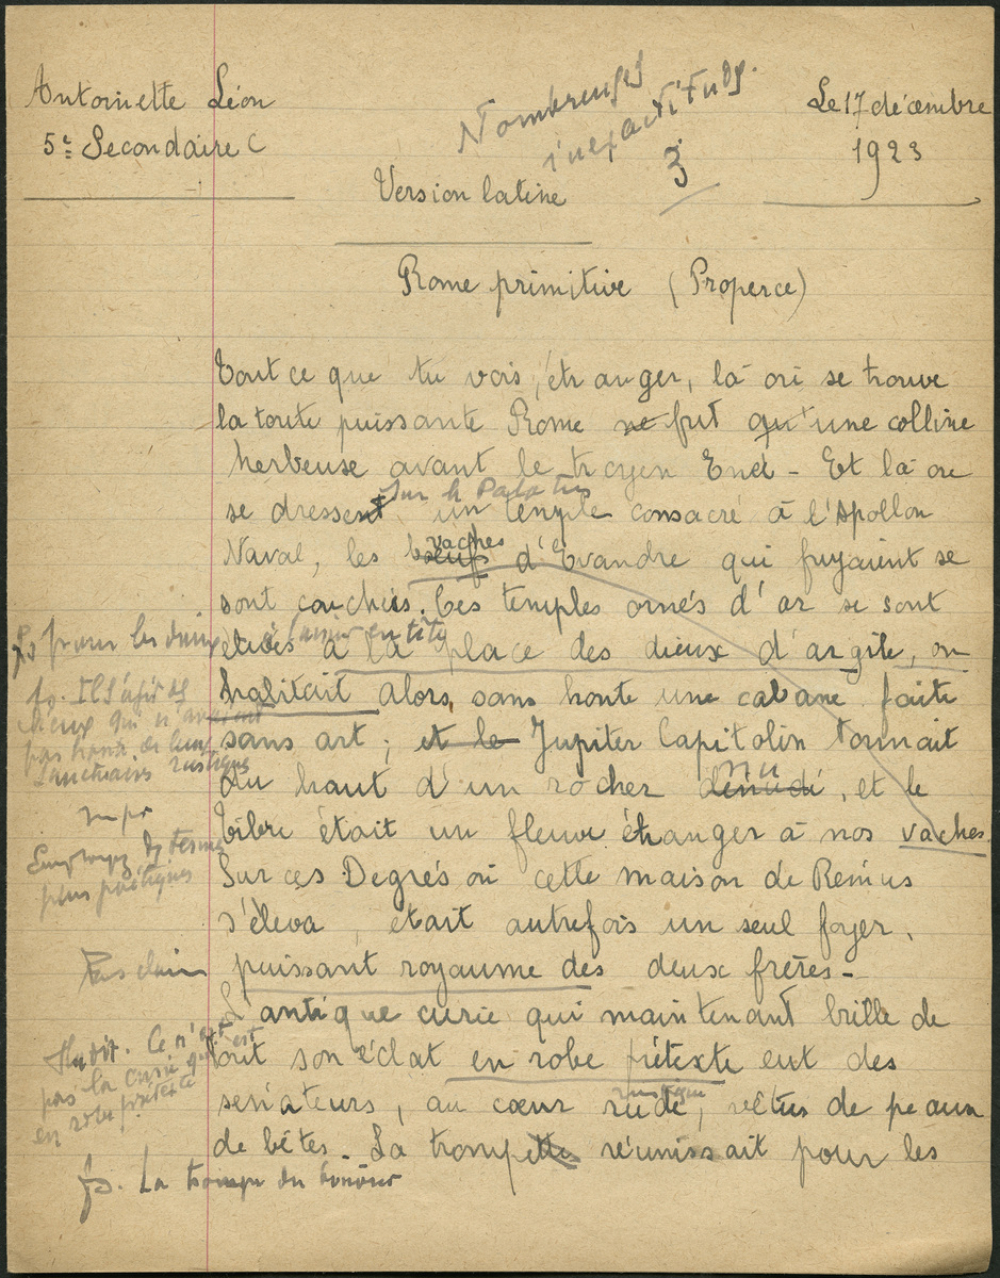 Antoinette Léon
5e Secondaire C
Nombreuses
inexactitudes.
3
Le 17 décembre
1923
Version latine
Rome primitive (Properce)
Tout ce que tu vois, étranger, là où se trouve
la toute puissante Rome ne fut qu'une colline
herbeuse avant le troyen Eneé - Et là où
sur le Palatin
se dressent un temple consacré à l'Apollon
vaches
Naval, les bœufs d'Evandre qui fuyaient se
sont couchées. Ces temples ornés d'or se sont
fs pour les dieux
élevés à la place des dieux d'argile, on
fs. Il s'agit des
dieux qui n'avaient
pas honte de leurs
sanctuaires rustiques
habitait alors, sans honte une cabane faite
sans art ; et le Jupiter Capitolin tonnait
nu
du haut d'un rocher dénudé, et le
impr
Employez des termes
plus poétiques
Tibre était un fleuve étranger à nos vaches.
Sur ces Degrés où cette maison de Rémus
s'éleva, était autrefois un seul foyer,
Pas clair
puissant royaume des deux frères -
L'antique curie qui maintenant brille de
Ce n'est
pas la curie qui est
en robe prétexte
tout son éclat en robe prétexte eut des
rustique
sénateurs, au cœur rude, vêtus de peaux
de bêtes. La trompette réunissait pour les
fs. La trompe du bouvier